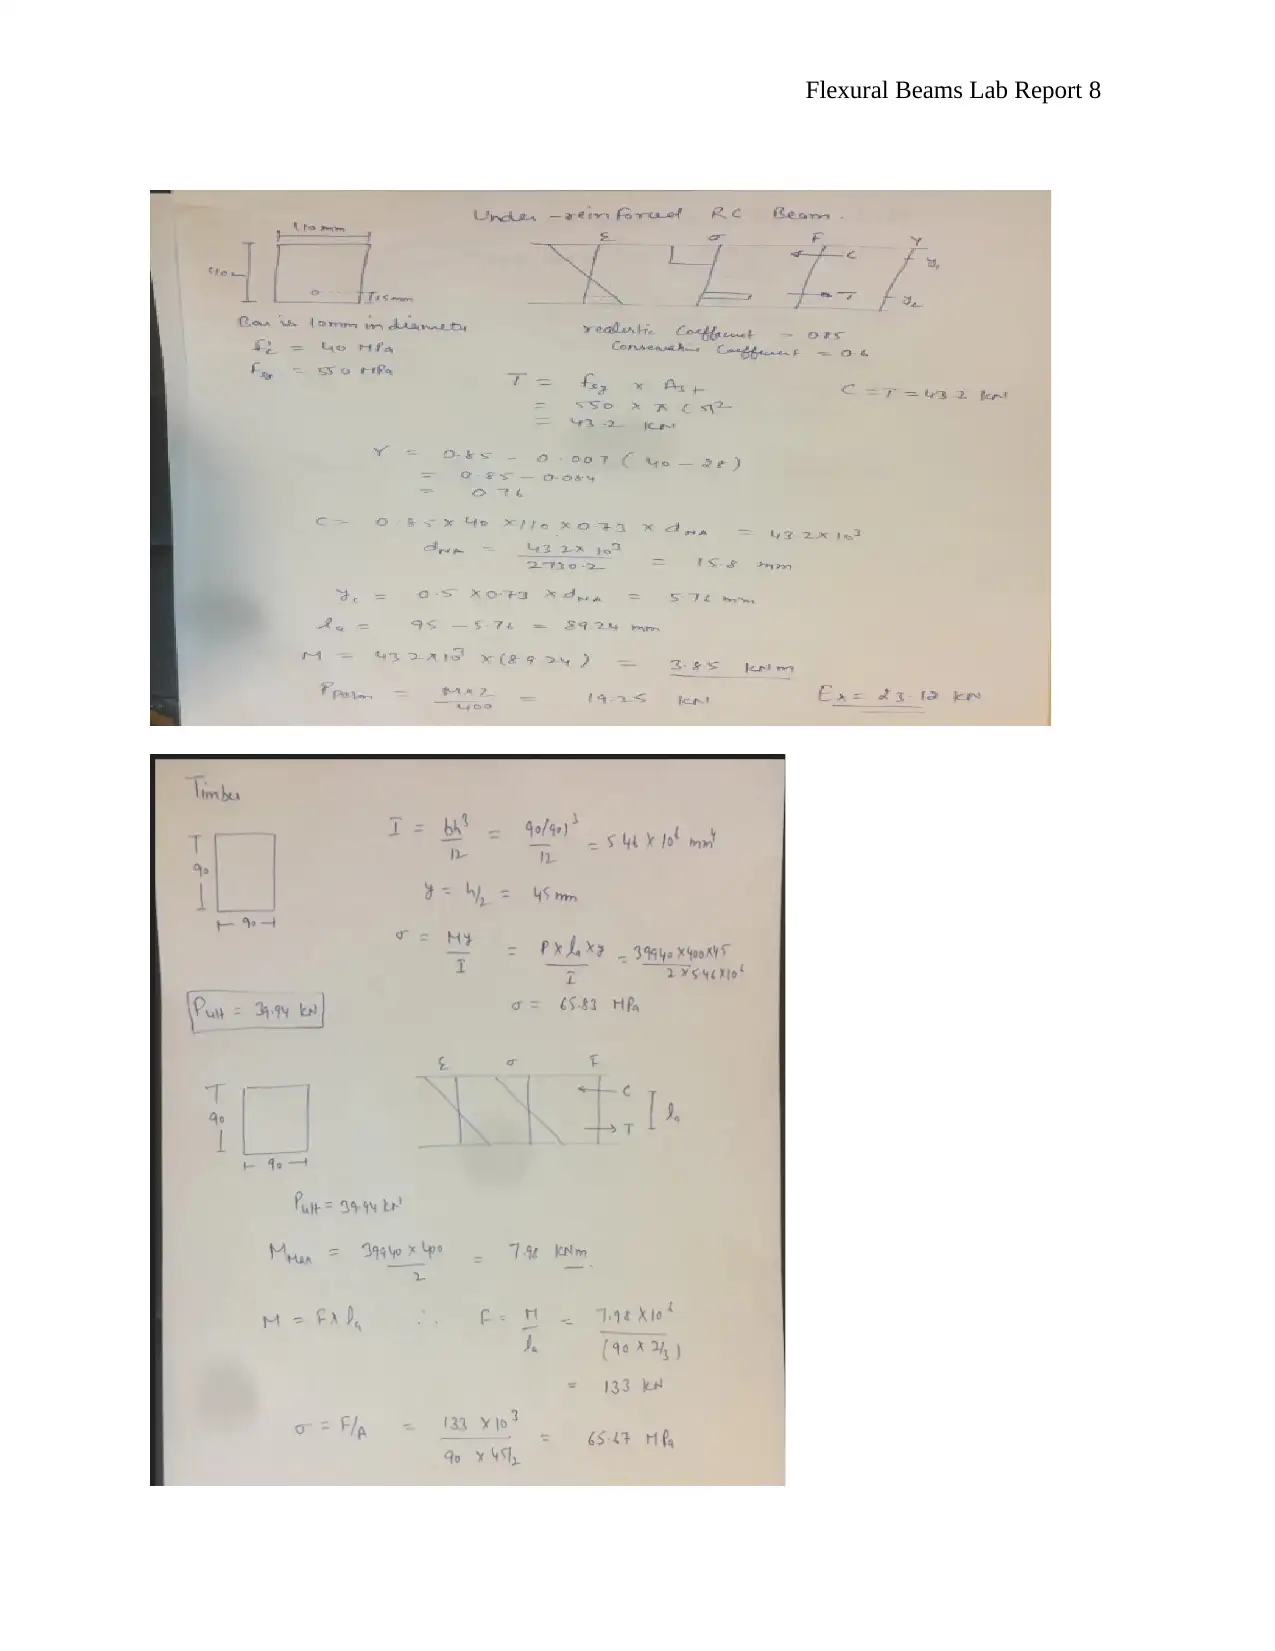 Flexural Beams Lab Report 8
Under-reinforced RC Beam.
110 mm
ε σ F Y
C
y₁
T
y₂
15mm
Bar is 10mm in diameter
f'c = 40 MPa
fsy = 550 MPa
realistic Coefficient - 0.85
Conservative Coefficient = 0.6
T = fsy × Ast
= 550 × π (5)²
= 43.2 kN
C = T = 43.2 kN
γ = 0.85 - 0.007 (40 - 28)
= 0.85 - 0.084
= 0.76
C = 0.85 × 40 × 110 × 0.73 × dNA = 43.2 × 10³
dNA = 43.2 × 10³ / 2730.2 = 15.8 mm
yc = 0.5 × 0.73 × dNA = 5.76 mm
la = 95 - 5.76 = 89.24 mm
M = 43.2 × 10³ × (89.24) = 3.85 kNm
= M × 2 / 400 = 19.25 kN
Ex = 23.12 kN
Timber
90
90
I = bh³/12 = 90(90)³/12 = 5.46 × 10⁶ mm⁴
y = h/2 = 45 mm
σ = My/I = P × la × y / I = 39940 × 400 × 45 / 2 × 5.46 × 10⁶
Pult = 39.94 kN
σ = 65.83 MPa
ε σ F
90
90
C
T
la
Pult = 39.94 kN
MMax = 39940 × 400 / 2 = 7.98 kNm.
M = F × la ∴ F = M/la = 7.98 × 10⁶ / (90 × 2/3)
= 133 kN
σ = F/A = 133 × 10³ / 90 × 45/2 = 65.67 MPa